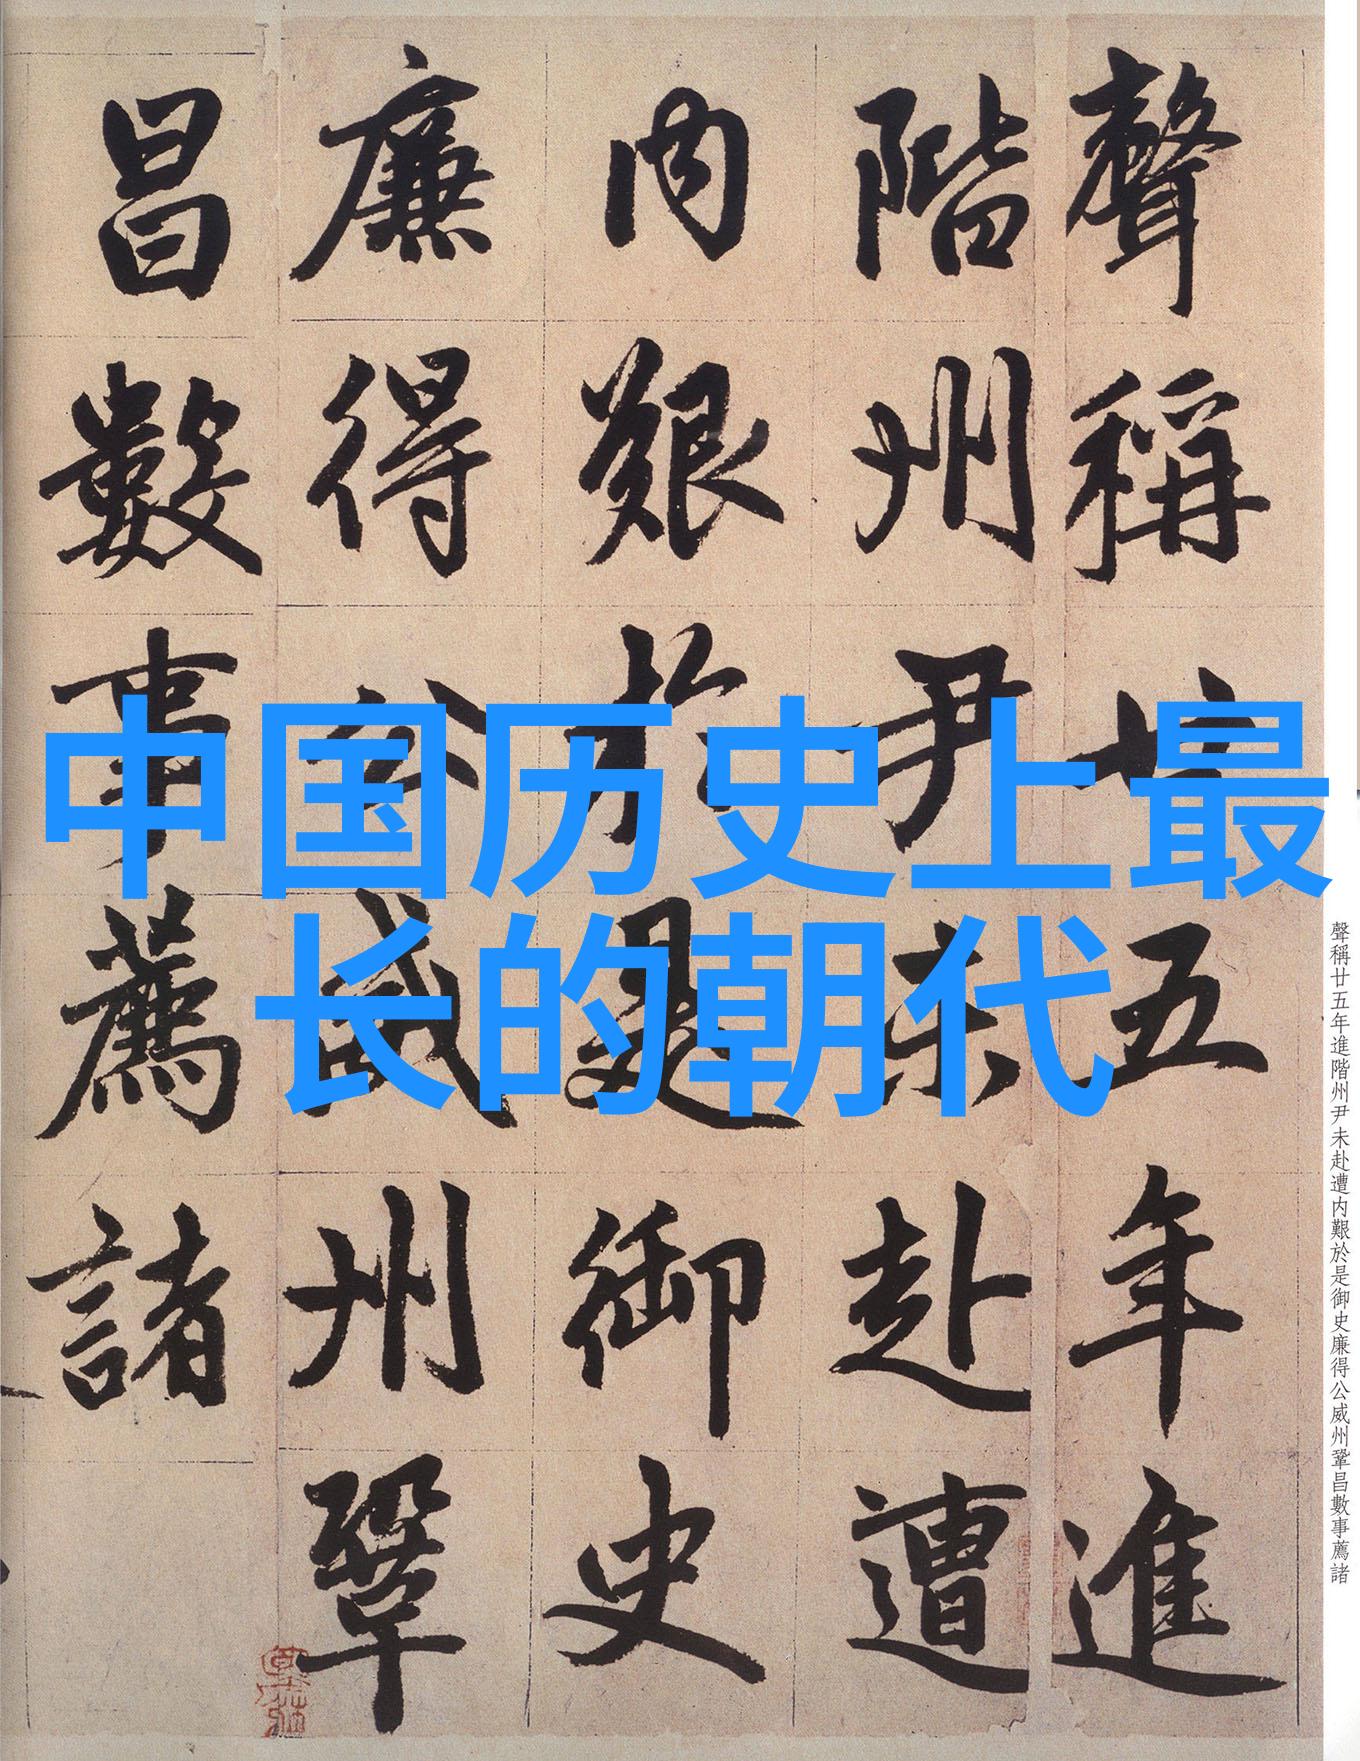 中国历史上最
长的朝代
聲稱廿五年進
階州尹未赴遭
内艱於是御史
廉得公威州鞏
昌數事薦諸
聲稱廿五年進階州尹未赴遭内艱於是御史廉得公威州鞏昌數事薦諸